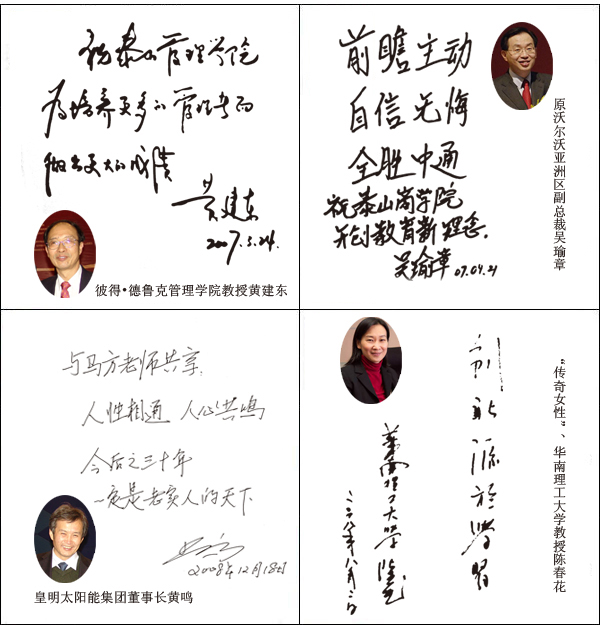 祝泰山管理学院
为培养更多的管理专而
做出更大的成绩
黄建东
2007.5.24.
彼得·德鲁克管理学院教授黄建东
前瞻主动
自信无悔
全胜中通
祝泰山商学院
开创教育新理念.
吴瑜章 07.04.21
原沃尔沃亚洲区副总裁吴瑜章
与马方老师共享:
人性相通 人心共鸣
今后之三十年
一定是老实人的天下
2008年12月18日
皇明太阳能集团董事长黄鸣
创新源于学习
华南理工大学 陈春花
二〇〇八年八月二日
“传奇女性”、华南理工大学教授陈春花